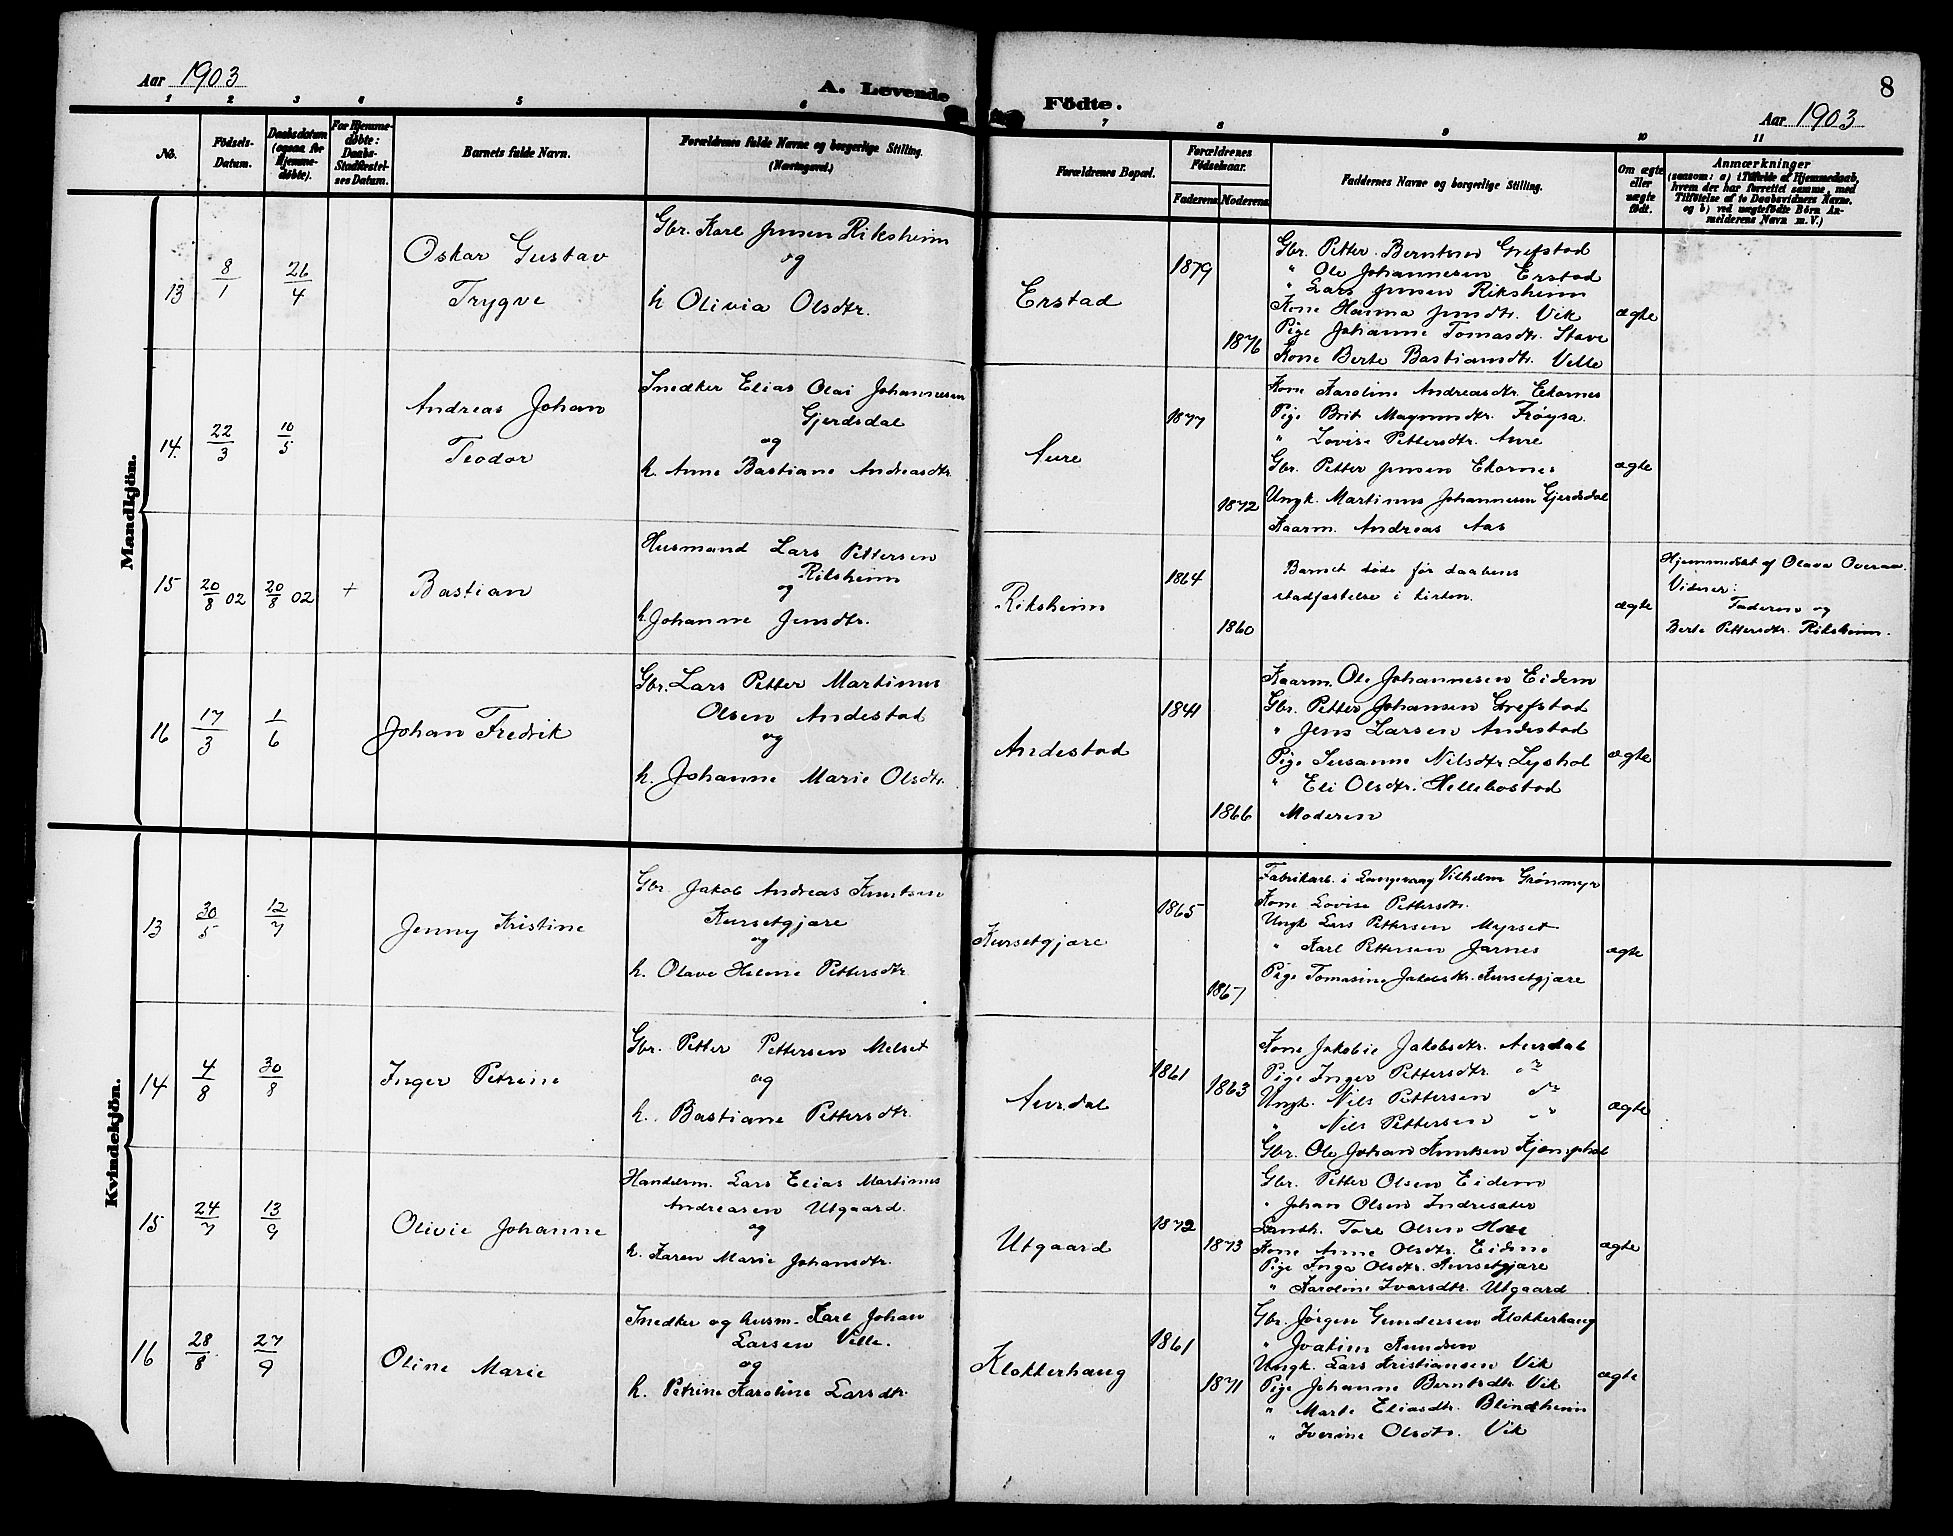 Aar 1903
A. Levende Födte.
8
Aar 1903
1 2 3 4 5 6 7 8 9 10 11
No.
Födsels-
Datum.
Daabsdatum
(ogsaa for
Hjemme-
døbte).
For Hjemme-
døbte:
Daabs-
Stadfæstel-
ses Datum.
Barnets fulde Navn.
Forældrenes fulde Navne og borgerlige Stilling.
(Næringsvei.)
Forældrenes Bopæl.
Forældrenes
Fødselsaar.
Faderens Moderens
Faddernes Navne og borgerlige Stilling.
Om ægte
eller
uægte
født.
Anmærkninger
(saasom: a) i Tilfælde af Hjemmedaab,
hvem der har forrettet samme, med
Tilföielse af to Daabsvidners Navne,
og b) ved uægtefödte Börn An-
melderens Navn m. V.)
Mandkjön.
13
8/1
26/4
Oskar Gustav
Trygve
Gbr. Karl Jensen Riksheim
og
h Olivia Olsdtr.
Erstad
1879
1876
Gbr. Petter Berntsen Grefstad
" Ole Johannesen Erstad
" Lars Jensen Riksheim
Kone Hanna Jensdtr. Vik
Pige Johanne Tomasdtr. Stave
Kone Berte Bastiansdtr. Velle
ægte
14.
22/3
10/5
Andreas Johan
Teodor
Snedker Elias Olai Johannesen
Gjerdsdal
og
h. Anne Bastiane Andreasdtr.
Aure
1877
1872
Kone Karoline Andreasdtr. Ekornes
Pige Brit Magnusdtr. Frøysa
" Lovise Pettersdtr. Aure
Gbr. Petter Jensen Ekornes
Ungk. Martinus Johannesen Gjerdsdal
Kaarm. Andreas Aas
ægte
15
20/8 02
20/8 02
+
Bastian
Husmand Lars Pettersen
Riksheim
og
h. Johanne Jensdtr.
Riksheim
1864
1860
Barnet døde før daabens
stadfæstelse i kirken.
ægte
Hjemmedøbt af Olava Overaa.
Vidner:
Faderen og
Berte Pettersdtr. Riksheim.
16
17/3
1/6
Johan Fredrik
Gbr. Lars Petter Martinus
Olsen Andestad
og
h. Johanne Marie Olsdtr.
Andestad
1841
1866
Kaarm. Ole Johannesen Eidem
Gbr. Petter Johansen Grefstad
" Jens Larsen Andestad
Pige Susanne Nilsdtr. Lyshol
" Eli Olsdtr. Hellebostad
Moderen
ægte
Kvindekjön.
13
30/5
12/7
Jenny Kristine
Gbr. Jakob Andreas Knutsen
Kursetgjære
og
h. Olave Helene Pettersdtr.
Kursetgjære
1865
1867
Fabrikarb. i Langevaag Vilhelm Grønmyr
Kone Lovise Pettersdtr.
Ungk Lars Pettersen Myrset
" Karl Pettersen Jarnes
Pige Tomasine Jakobsdtr. Kursetgjære
ægte
14
4/8
30/8
Inger Petrine
Gbr. Petter Pettersen Melset
og
h. Bastiane Pettersdtr.
Aursdal
1861
1863
Kone Jakobie Jakobsdtr. Aursdal
Pige Inger Pettersdtr. do
Ungk. Nils Pettersen do
" Nils Pettersen " "
Gbr. Ole Johan Knutsen
ægte
15
24/7
13/9
Olivie Johanne
Handelsm. Lars Elias Martinus
Andreasen Utgaard.
og
h. Karen Marie Johansdtr.
Utgaard
1872
1873
Gbr. Petter Olsen Eidem
" Johan Olsen Indresæter
Tore Olsen
Kone Anne Olsdtr. Eidem
Pige Inga Olsdtr. Kursetgjære
" Karoline Ivarsdtr. Utgaard
ægte
16
28/8
27/9
Oline Marie
Snedker og husm. Karl Johan
Larsen Velle.
og
h. Petrine Karoline Larsdtr.
Klokkerhaug
1861
1871
Gbr. Jørgen Gundersen Klokkerhaug
" Joakim Knudsen
Ungk. Lars Kristiansen Vik
Pige Johanne Berntsdtr. Vik
" Marte Eliasdtr. Blindheim
" Iverine Olsdtr. Vik
ægte